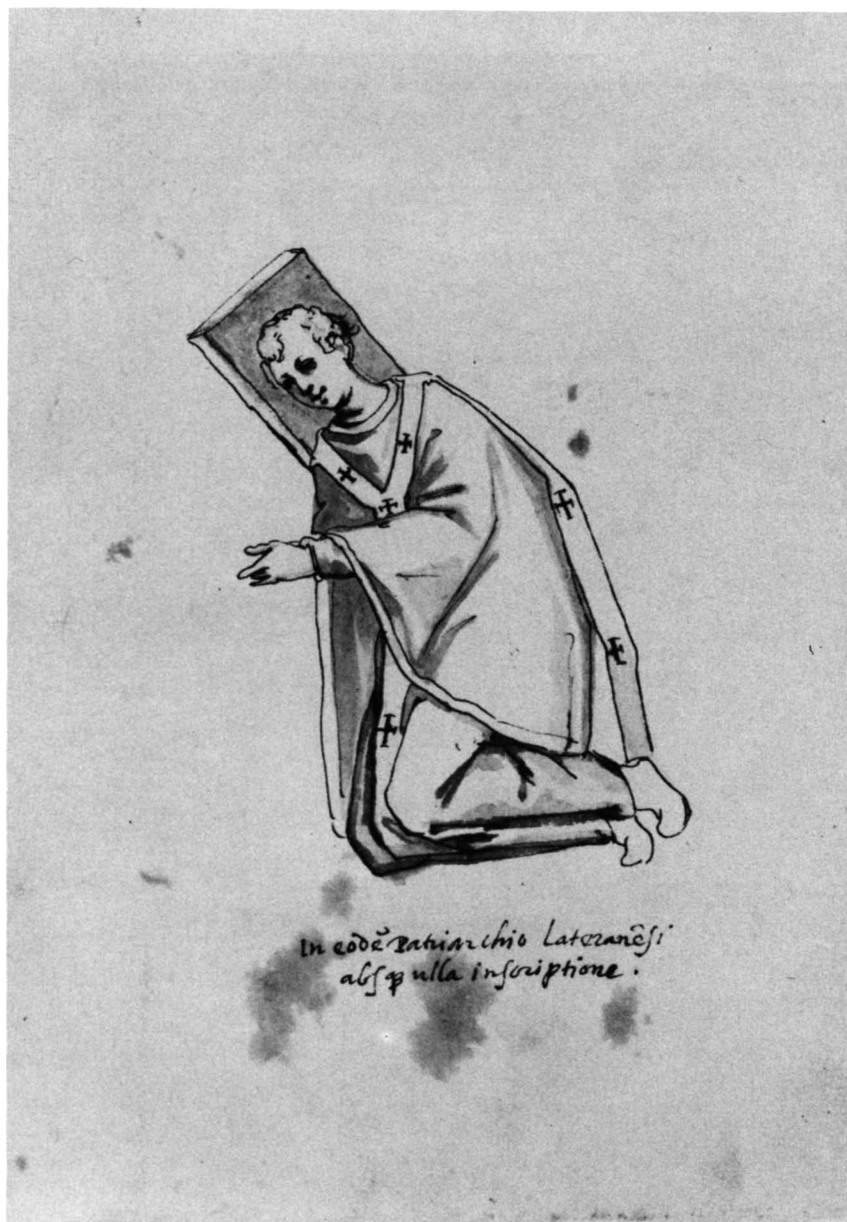 In eodē Patriarchio Lateranēsi
absqꝫ ulla inscriptione.